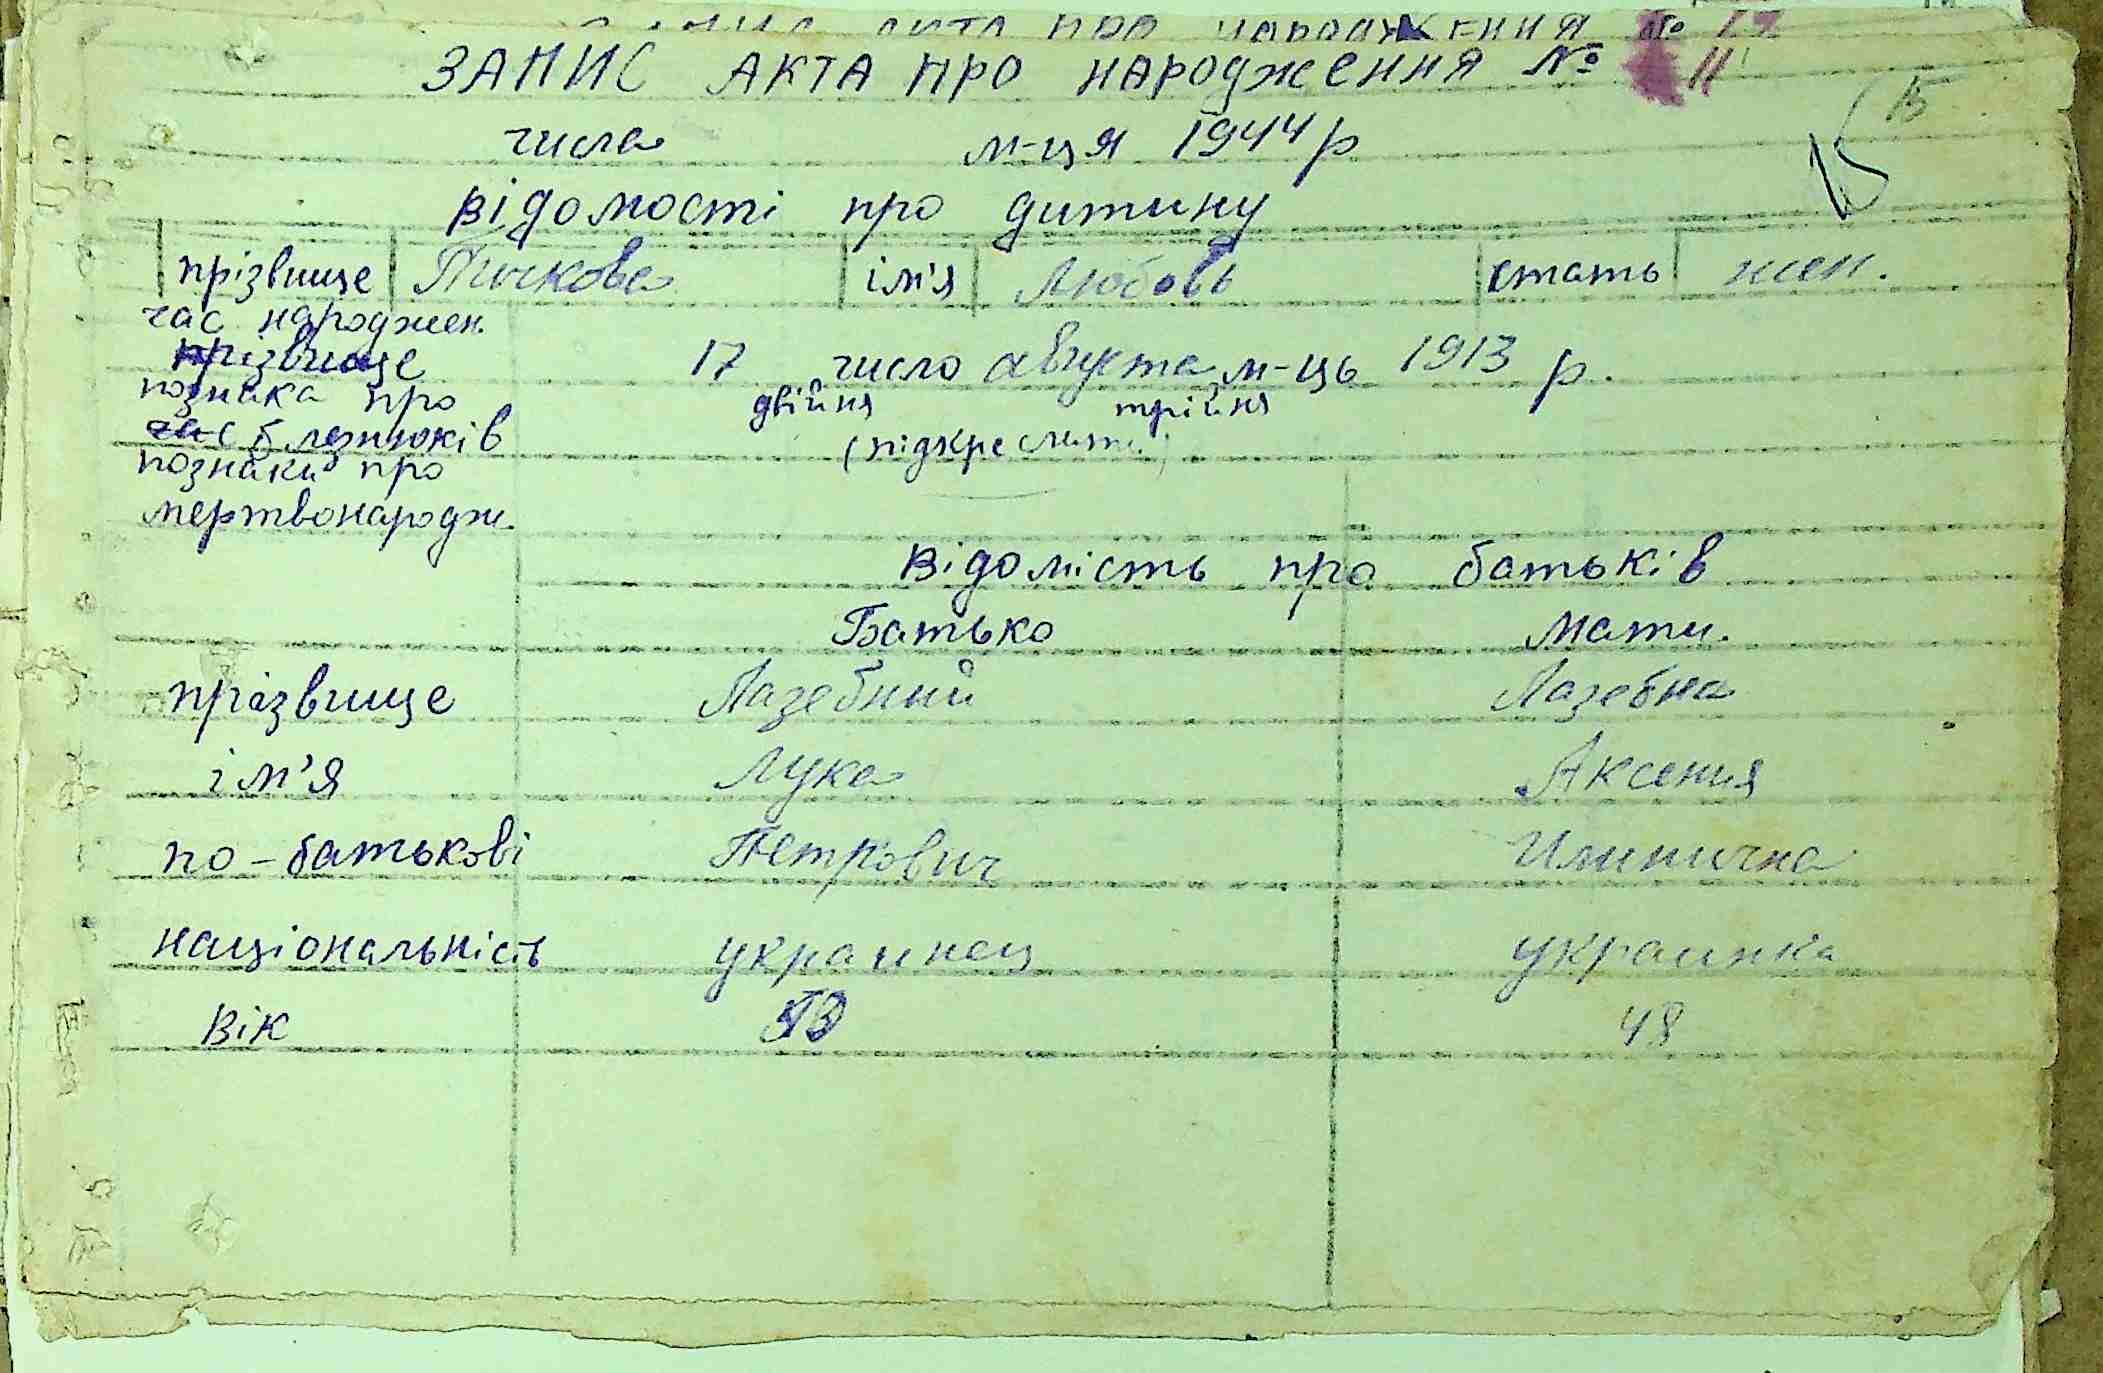 ЗАПИС АКТА ПРО НАРОДЖЕННЯ № 11
числа м-ця 1944 р
відомості про дитину
прізвище Тючкова ім'я Любовь стать жен.
час народжен.
прізвище 17 число августа м-ць 1913 р.
познака про двійня трійня
час близнюків (підкреслити)
познаки про
мертвонародж.
Відомість про батьків
Батько Мати.
прізвище Лазебный Лазебна
ім'я Лука Аксения
по-батькові Петрович
національність украинец украинка
вік 48
15